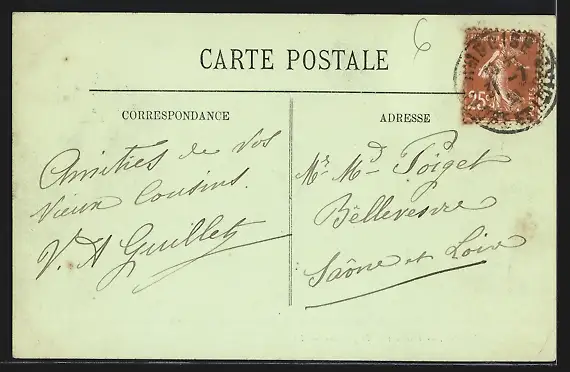 6
CARTE POSTALE
25c
CORRESPONDANCE
ADRESSE
Amitiés de vos
vieux Cousins.
V. A Guillet
Mr. Md. Poiget
Bellevesvre
Saône et Loire